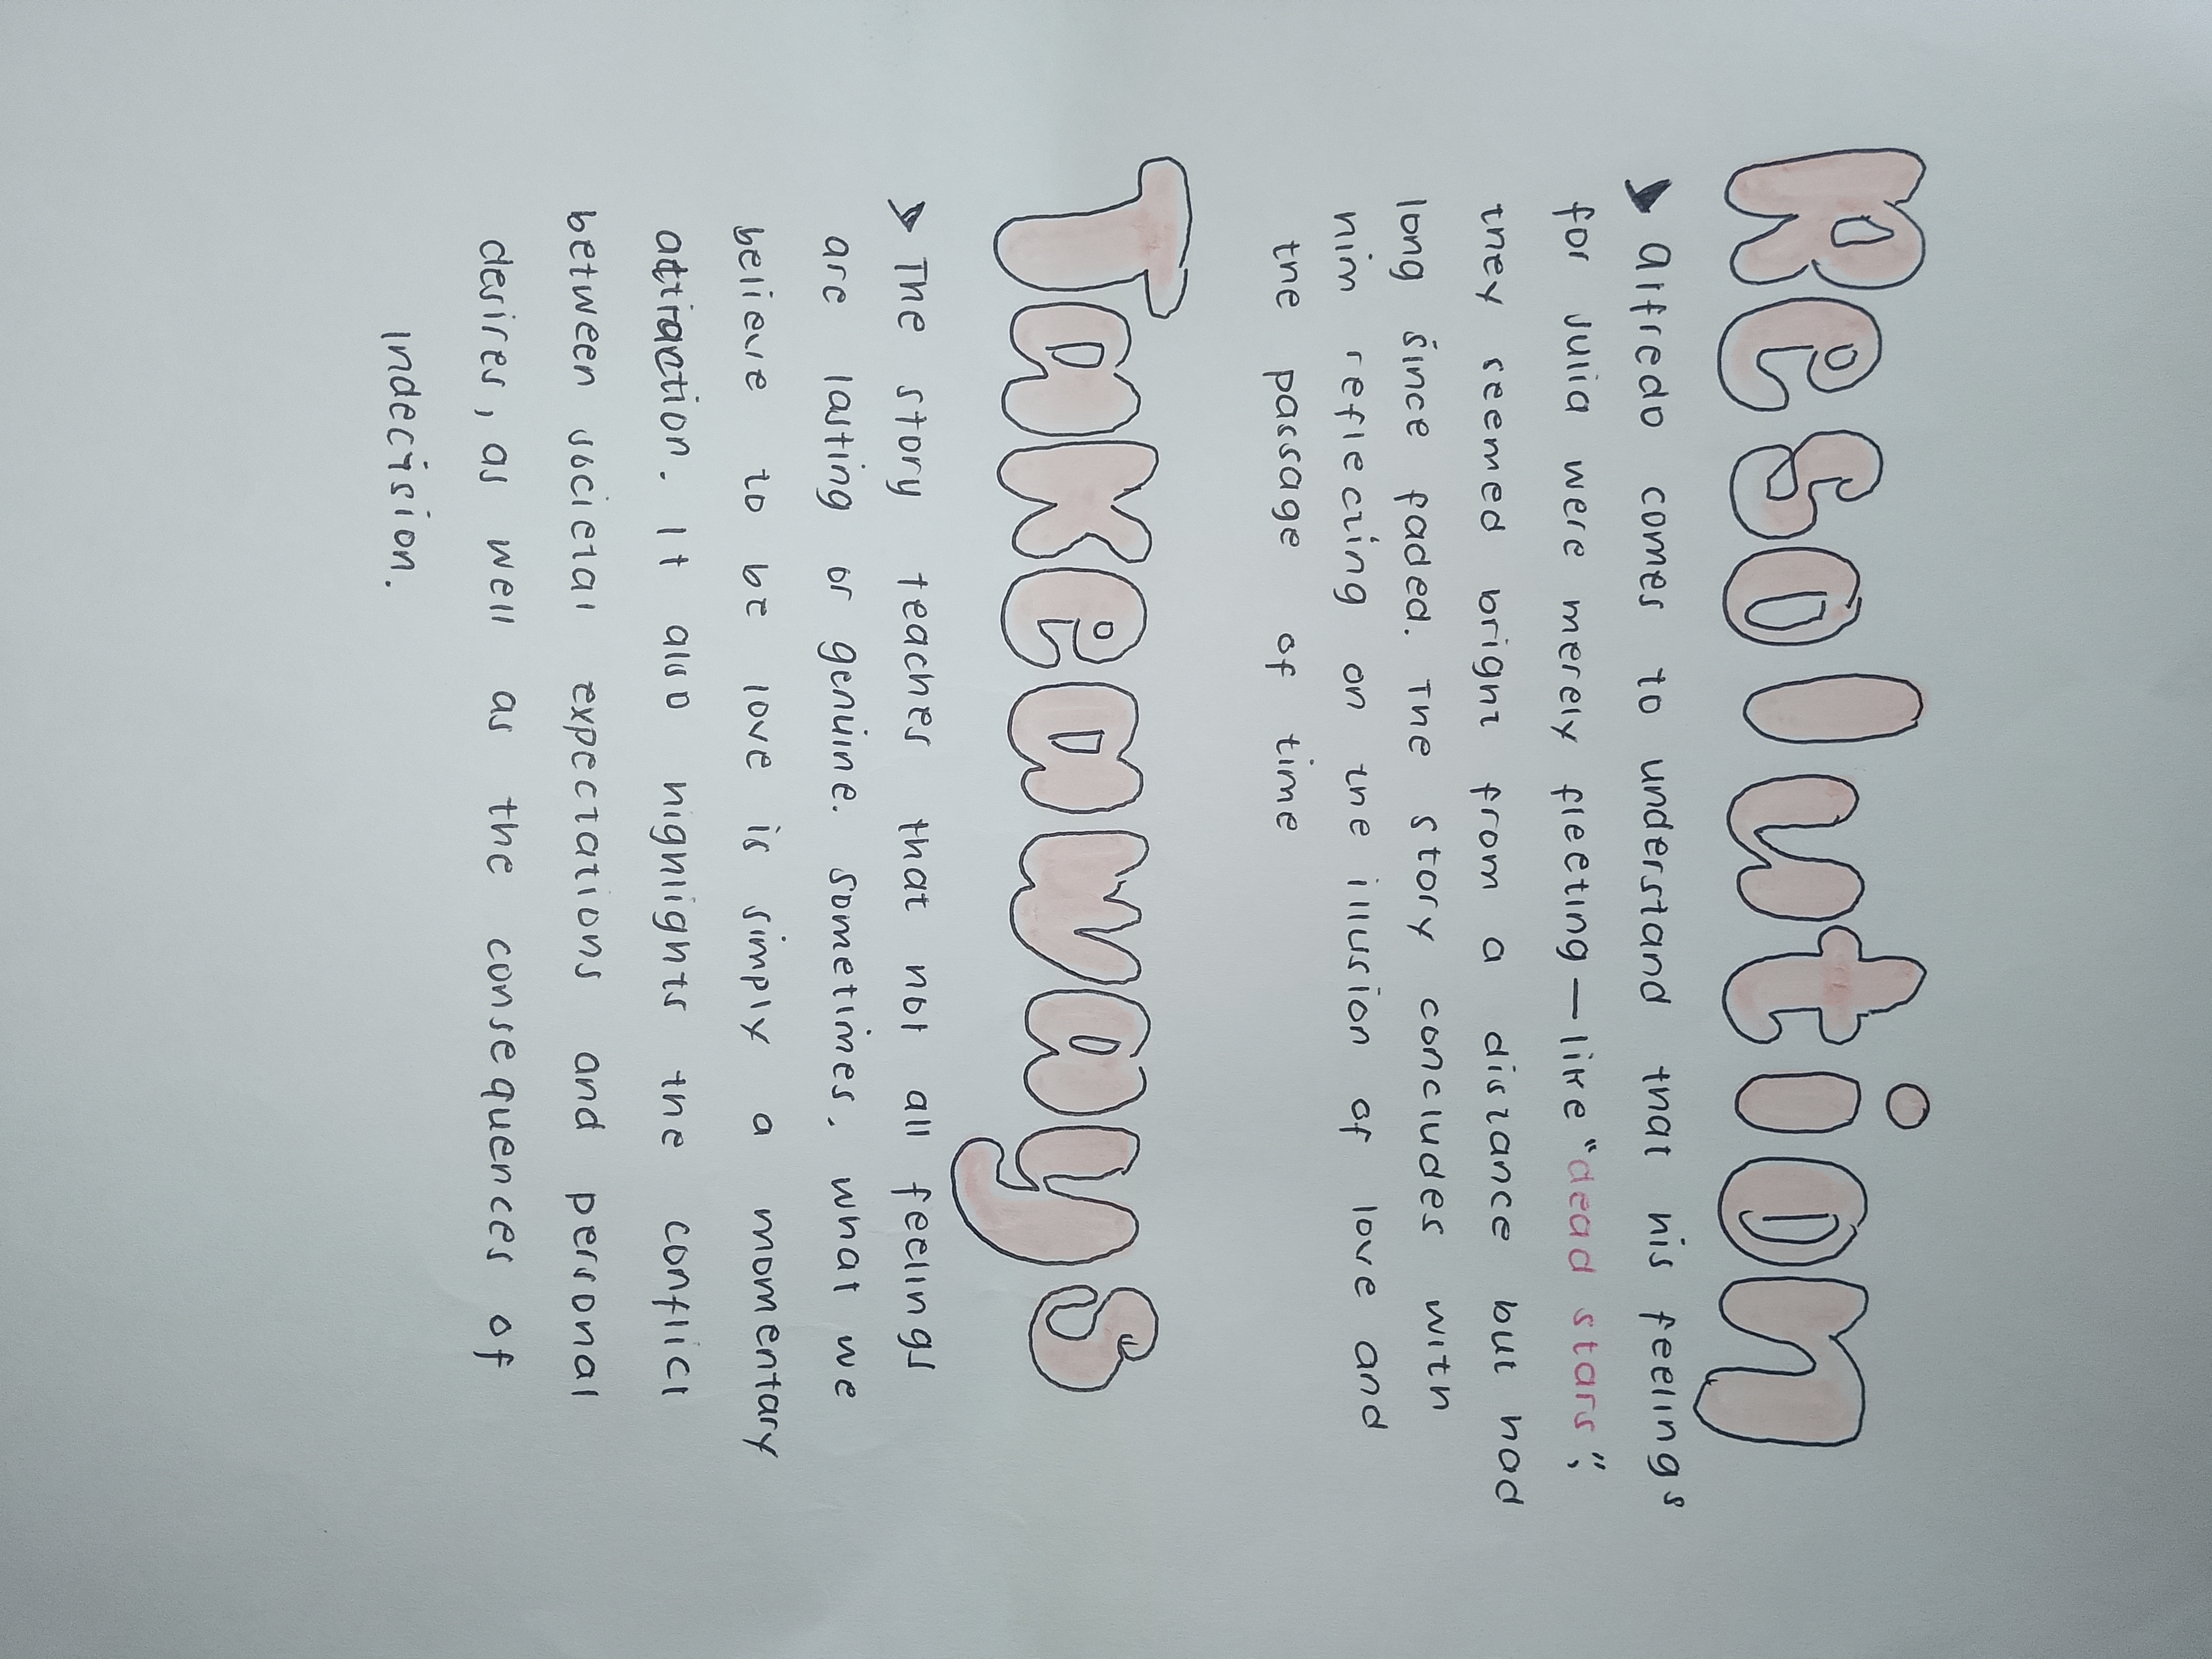 Resolution
➤ Alfredo comes to understand that his feelings
for Julia were merely fleeting — like "dead stars";
they seemed bright from a distance but had
long since faded. The story concludes with
him reflecting on the illusion of love and
the passage of time
Takeaways
➤ The story teaches that not all feelings
are lasting or genuine. Sometimes, what we
believe to be love is simply a momentary
attraction. It also highlights the conflict
between societal expectations and personal
desires, as well as the consequences of
Indecision.